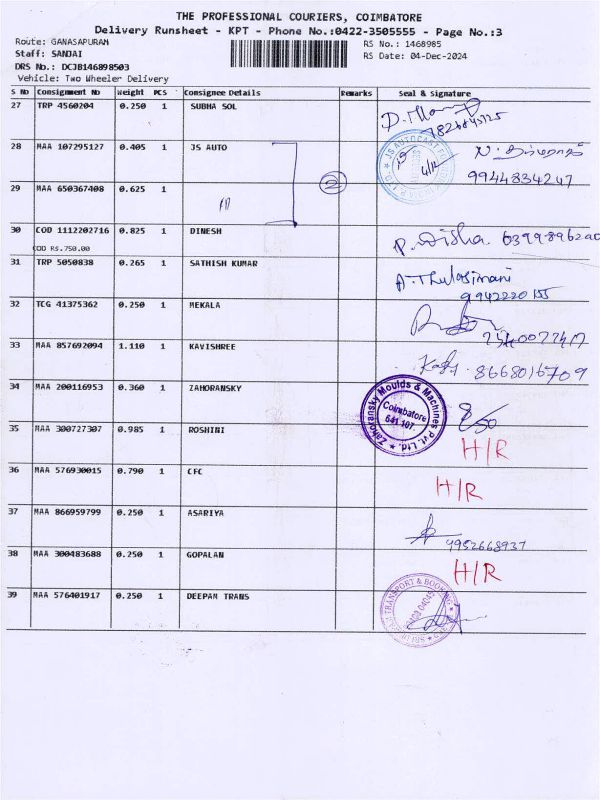 THE PROFESSIONAL COURIERS, COIMBATORE
Delivery Runsheet - KPT - Phone No.:0422-3505555 - Page No.:3
Route: GANASAPURAM
RS No.: 1468985
Staff: SANJAI
RS Date: 04-Dec-2024
DRS No.: DCJB146898503
Vehicle: Two Wheeler Delivery
S No Consignment No Weight PCS Consignee Details Remarks Seal & signature
27 TRP 4560204 0.250 1 SUBHA SOL
7826843725
28 MAA 107295127 0.405 1 JS AUTO
9944834247
29 MAA 650367408 0.625 1
2
30 COD 1112202716 0.825 1 DINESH
COD RS.750.00
31 TRP 5050838 0.265 1 SATHISH KUMAR A. Thulasimani
9942220155
32 TCG 41375362 0.250 1 MEKALA
33 MAA 857692094 1.110 1 KAVISHREE 8668016709
34 MAA 200116953 0.360 1 ZAHORANSKY
Zahoransky Moulds & Machines Pvt. Ltd.
Coimbatore
641 107.
35 MAA 300727307 0.985 1 ROSHINI H/R
36 MAA 576930015 0.790 1 CFC H/R
37 MAA 866959799 0.250 1 ASARIYA
9952668937
38 MAA 300483688 0.250 1 GOPALAN H/R
39 MAA 576401917 0.250 1 DEEPAM TRANS
TRANSPORT & BOOKING